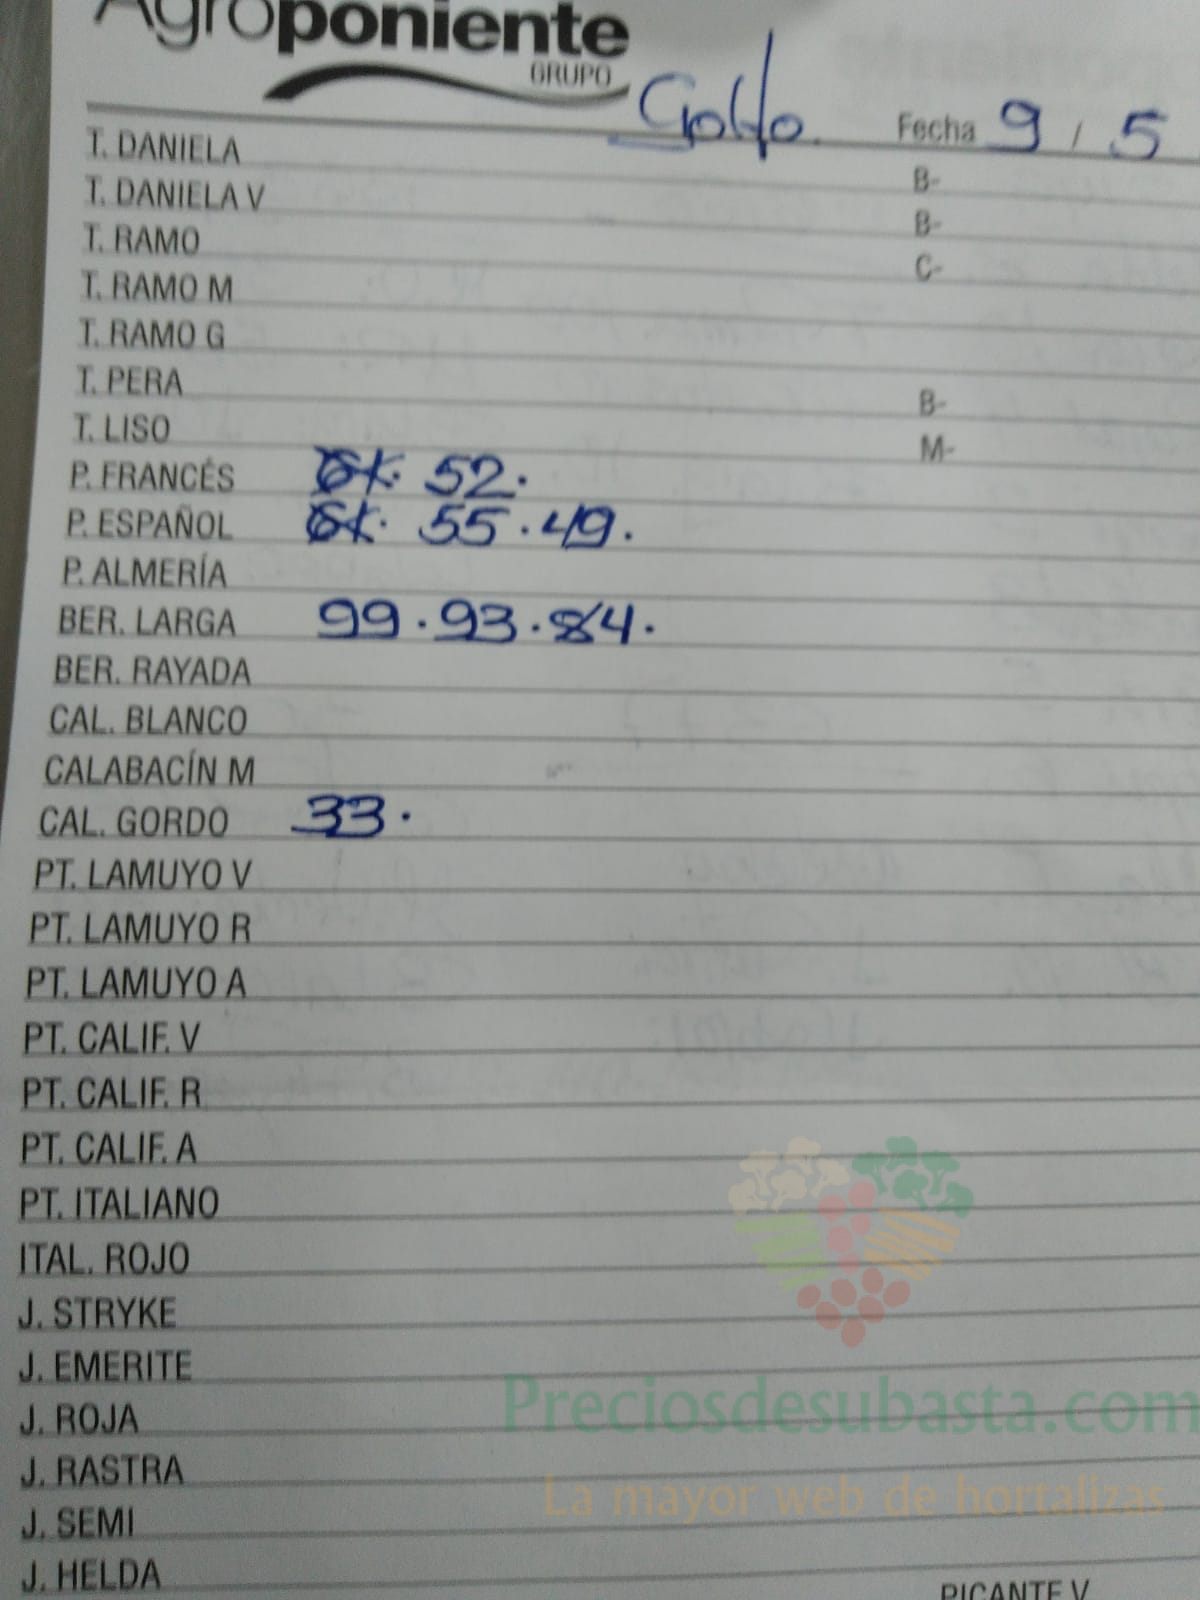 Agroponiente
GRUPO
Fecha 9 / 5
T. DANIELA B-
T. DANIELA V B-
T. RAMO C-
T. RAMO M
T. RAMO G
T. PERA B-
T. LISO M-
P. FRANCÉS 52.
P. ESPAÑOL 55.49.
P. ALMERÍA
BER. LARGA 99.93.84.
BER. RAYADA
CAL. BLANCO
CALABACÍN M
CAL. GORDO 33.
PT. LAMUYO V
PT. LAMUYO R
PT. LAMUYO A
PT. CALIF. V
PT. CALIF. R
PT. CALIF. A
PT. ITALIANO
ITAL. ROJO
J. STRYKE
J. EMERITE
J. ROJA
Preciosdesubasta.com
J. RASTRA
La mayor web de hortalizas
J. SEMI
J. HELDA
PICANTE V